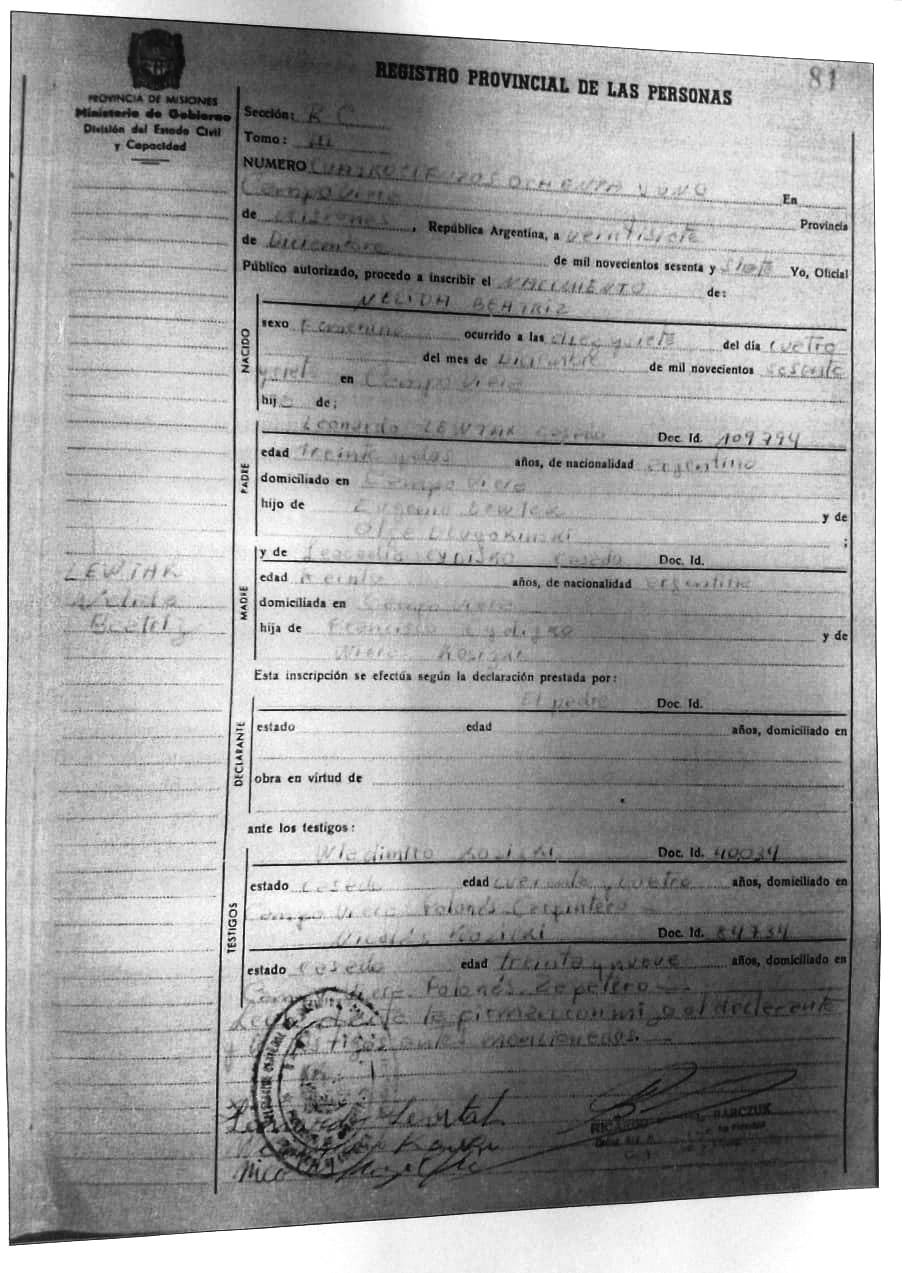 81
PROVINCIA DE MISIONES
Ministerio de Gobierno
División del Estado Civil
y Capacidad
REGISTRO PROVINCIAL DE LAS PERSONAS
Sección: R C
Tomo: III
NUMERO CUATROCIENTOS OCHENTA Y UNO En
Campo Viera Provincia
de Misiones, República Argentina, a veintisiete
de Diciembre de mil novecientos sesenta y Siete Yo, Oficial
Público autorizado, procedo a inscribir el NACIMIENTO de:
NELIDA BEATRIZ
NACIDO
sexo Femenino ocurrido a las diez y siete del día cuatro
del mes de Diciembre de mil novecientos sesenta
y siete en Campo Viera
hija de:
PADRE
Leonardo LEWTAK casado Doc. Id. 109794
edad treinta y dos años, de nacionalidad argentino
domiciliado en Campo Viera
hijo de Eugenio Lewtak y de
Olga ;
MADRE
y de Leocadia casada Doc. Id.
edad treinta años, de nacionalidad argentina
domiciliada en Campo Viera
hija de Francisco y de
Esta inscripción se efectúa según la declaración prestada por:
DECLARANTE
El padre Doc. Id.
estado edad años, domiciliado en
obra en virtud de
ante los testigos:
TESTIGOS
Wladimiro Kozicki Doc. Id. 40034
estado casado edad cuarenta y cuatro años, domiciliado en
Campo Viera Polonés Carpintero
Nicolás Kozicki Doc. Id. 84734
estado casado edad treinta y nueve años, domiciliado en
Campo Viera Polonés Zapatero
Leyda el acta la firman conmigo el declarante
y los testigos antes mencionados.
LEWTAK
Nelida
Beatriz
Leonardo Lewtak
RICARDO BARCZUK